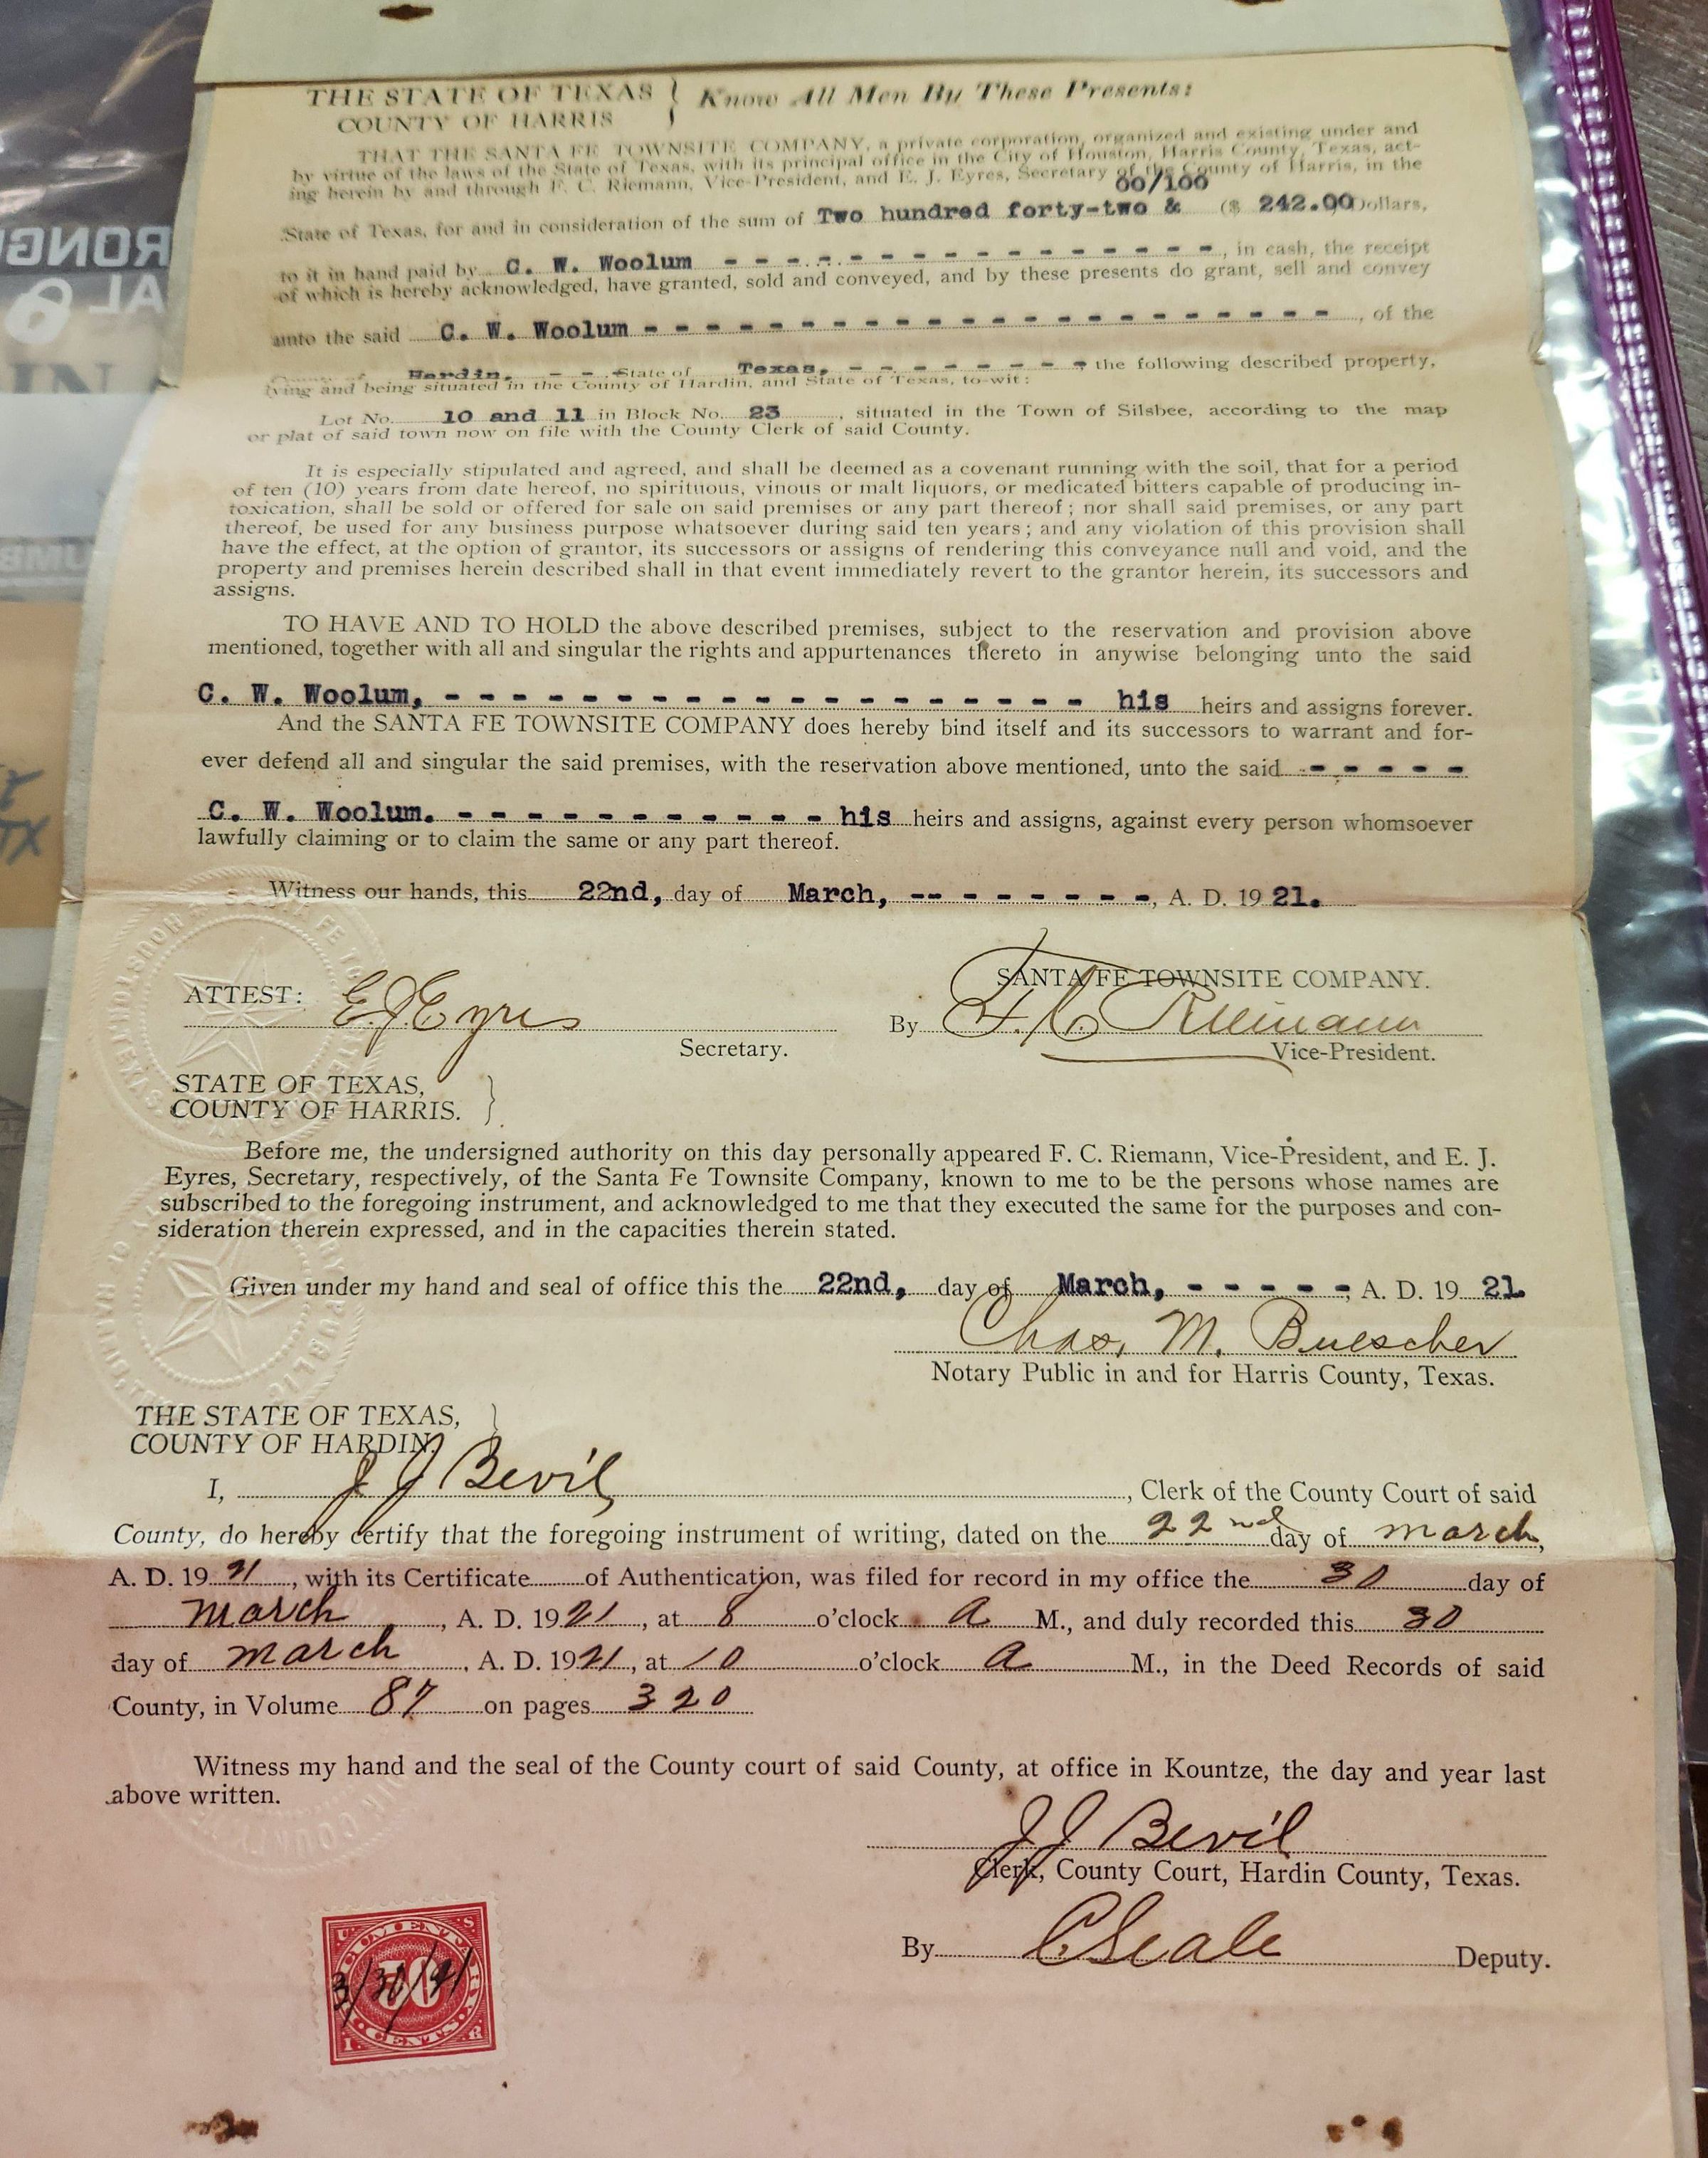 THE STATE OF TEXAS } Know All Men By These Presents:
COUNTY OF HARRIS
THAT THE SANTA FE TOWNSITE COMPANY, a private corporation, organized and existing under and
by virtue of the laws of the State of Texas, with its principal office in the City of Houston, Harris County, Texas, act-
ing herein by and through F. C. Riemann, Vice-President, and E. J. Eyres, Secretary of the County of Harris, in the
00/100
State of Texas, for and in consideration of the sum of Two hundred forty-two & ($ 242.00 Dollars,
to it in hand paid by C. W. Woolum - - - - - - - - - - - - - - - - -, in cash, the receipt
of which is hereby acknowledged, have granted, sold and conveyed, and by these presents do grant, sell and convey
unto the said C. W. Woolum - - - - - - - - - - - - - - - - - - - - - - -, of the
County of Hardin, - - State of Texas, - - - - - - - the following described property,
lying and being situated in the County of Hardin, and State of Texas, to-wit:
Lot No. 10 and 11 in Block No. 23, situated in the Town of Silsbee, according to the map
or plat of said town now on file with the County Clerk of said County.
It is especially stipulated and agreed, and shall be deemed as a covenant running with the soil, that for a period
of ten (10) years from date hereof, no spirituous, vinous or malt liquors, or medicated bitters capable of producing in-
toxication, shall be sold or offered for sale on said premises or any part thereof; nor shall said premises, or any part
thereof, be used for any business purpose whatsoever during said ten years; and any violation of this provision shall
have the effect, at the option of grantor, its successors or assigns of rendering this conveyance null and void, and the
property and premises herein described shall in that event immediately revert to the grantor herein, its successors and
assigns.
TO HAVE AND TO HOLD the above described premises, subject to the reservation and provision above
mentioned, together with all and singular the rights and appurtenances thereto in anywise belonging unto the said
C. W. Woolum, - - - - - - - - - - - - - - - - - - - his heirs and assigns forever.
And the SANTA FE TOWNSITE COMPANY does hereby bind itself and its successors to warrant and for-
ever defend all and singular the said premises, with the reservation above mentioned, unto the said - - - - -
C. W. Woolum. - - - - - - - - - - - his heirs and assigns, against every person whomsoever
lawfully claiming or to claim the same or any part thereof.
Witness our hands, this 22nd, day of March, -- - - - - - - -, A. D. 19 21.
SANTA FE TOWNSITE COMPANY.
ATTEST: E. J. Eyres By F. C. Riemann
Secretary. Vice-President.
STATE OF TEXAS, }
COUNTY OF HARRIS.
Before me, the undersigned authority on this day personally appeared F. C. Riemann, Vice-President, and E. J.
Eyres, Secretary, respectively, of the Santa Fe Townsite Company, known to me to be the persons whose names are
subscribed to the foregoing instrument, and acknowledged to me that they executed the same for the purposes and con-
sideration therein expressed, and in the capacities therein stated.
Given under my hand and seal of office this the 22nd, day of March, - - - - - A. D. 19 21.
Chas. M. Buescher
Notary Public in and for Harris County, Texas.
THE STATE OF TEXAS, }
COUNTY OF HARDIN.
I, J J Bevil, Clerk of the County Court of said
County, do hereby certify that the foregoing instrument of writing, dated on the 22nd day of March,
A. D. 19 21, with its Certificate of Authentication, was filed for record in my office the 30 day of
March, A. D. 19 21, at 8 o'clock A M., and duly recorded this 30
day of March, A. D. 19 21, at 10 o'clock A M., in the Deed Records of said
County, in Volume 87 on pages 320
Witness my hand and the seal of the County court of said County, at office in Kountze, the day and year last
above written.
J J Bevil
Clerk, County Court, Hardin County, Texas.
By C Seale Deputy.
DOCUMENTARY
3/30/21
50
CENTS